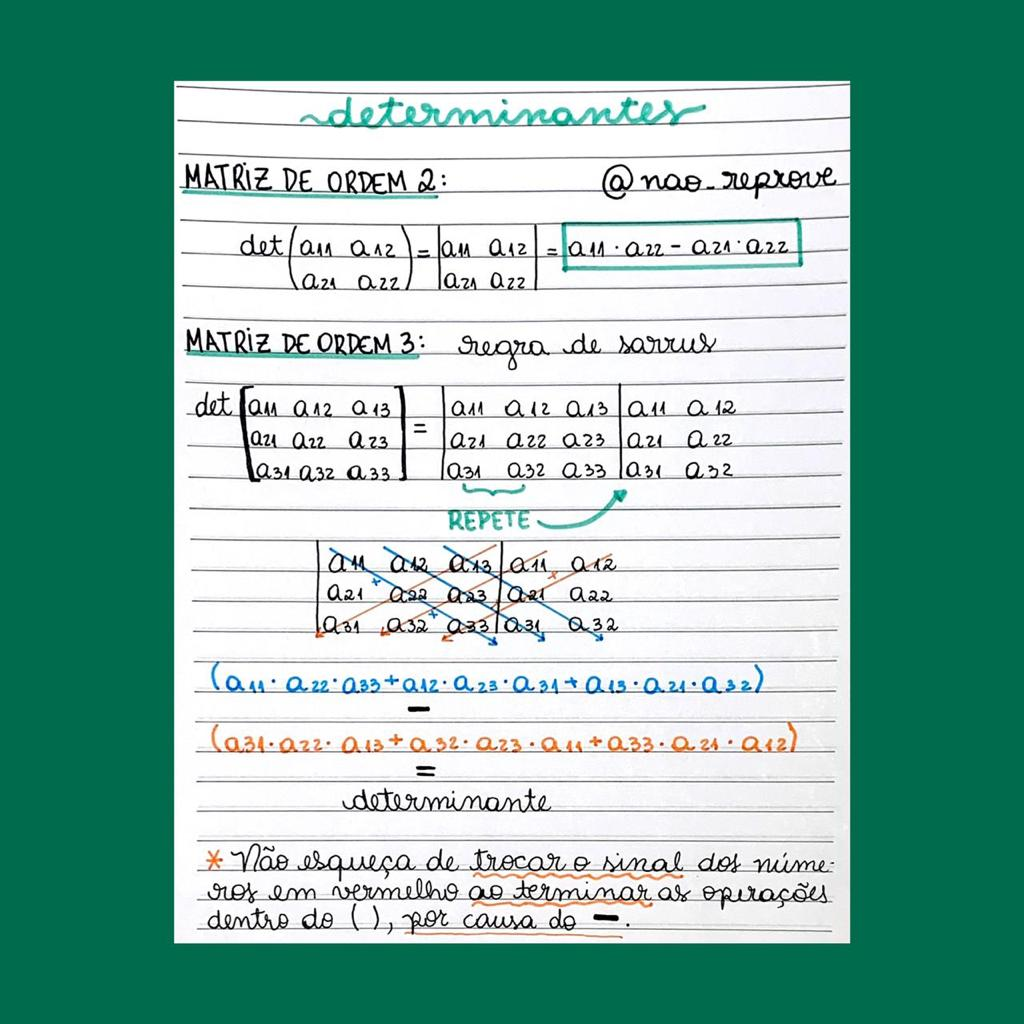 determinantes
MATRIZ DE ORDEM 2: @nao_reprove
det(a11 a12) = |a11 a12| = a11 · a22 - a21 · a22
(a21 a22) |a21 a22|
MATRIZ DE ORDEM 3: regra de sarrus
det [a11 a12 a13] = |a11 a12 a13|a11 a12
a21 a22 a23 a21 a22 a23 a21 a22
a31 a32 a33 a31 a32 a33 a31 a32
REPETE
a11 a12 a13 a11 a12
a21 a22 a23 a21 a22
a31 a32 a33 a31 a32
(a11 · a22 · a33 + a12 · a23 · a31 + a13 · a21 · a32)
-
(a31 · a22 · a13 + a32 · a23 · a11 + a33 · a21 · a12)
=
determinante
* Não esqueça de trocar o sinal dos núme-
ros em vermelho ao terminar as operações
dentro do ( ), por causa do -.